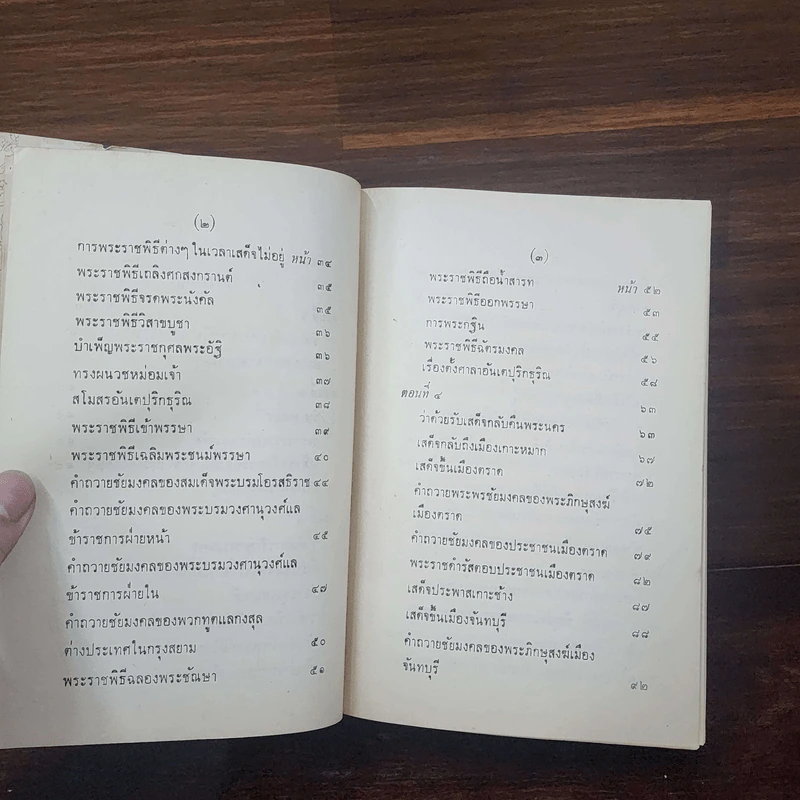 (๒)
การพระราชพิธีต่างๆ ในเวลาเสด็จไม่อยู่ หน้า ๓๔
พระราชพิธีเถลิงศกสงกรานต์ ๓๕
พระราชพิธีจรดพระนังคัล ๓๕
พระราชพิธีวิสาขบูชา ๓๖
บำเพ็ญพระราชกุศลพระอัฐิ ๓๖
ทรงผนวชหม่อมเจ้า ๓๗
สโมสรอันเตปุริกธุริณ ๓๘
พระราชพิธีเข้าพรรษา ๓๙
พระราชพิธีเฉลิมพระชนม์พรรษา ๔๐
คำถวายชัยมงคลของสมเด็จพระบรมโอรสธิราช ๔๔
คำถวายชัยมงคลของพระบรมวงศานุวงศ์แล
ข้าราชการฝ่ายหน้า ๔๕
คำถวายชัยมงคลของพระบรมวงศานุวงศ์แล
ข้าราชการฝ่ายใน ๔๗
คำถวายชัยมงคลของพวกทูตแลกงสุล
ต่างประเทศในกรุงสยาม ๕๐
พระราชพิธีฉลองพระชัณษา ๕๑
(๓)
พระราชพิธีถือน้ำสารท หน้า ๕๒
พระราชพิธีออกพรรษา ๕๓
การพระกฐิน ๕๕
พระราชพิธีฉัตรมงคล ๕๖
เรื่องตั้งศาลาอันเตปุริกธุริณ ๕๘
ตอนที่ ๔ ๖๓
ว่าด้วยรับเสด็จกลับคืนพระนคร ๖๓
เสด็จกลับถึงเมืองเกาะหมาก ๖๗
เสด็จขึ้นเมืองตราด ๗๒
คำถวายพระพรชัยมงคลของพระภิกษุสงฆ์
เมืองตราด ๗๕
คำถวายชัยมงคลของประชาชนเมืองตราด ๗๙
พระราชดำรัสตอบประชาชนเมืองตราด ๘๒
เสด็จประพาสเกาะช้าง ๘๗
เสด็จขึ้นเมืองจันทบุรี ๘๘
คำถวายชัยมงคลของพระภิกษุสงฆ์เมือง
จันทบุรี ๙๒